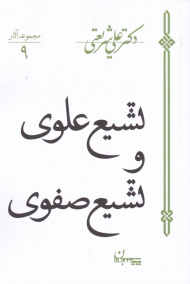 دکتر علی شریعتی
مجموعه آثار
۹
تشیع علوی
و
تشیع صفوی